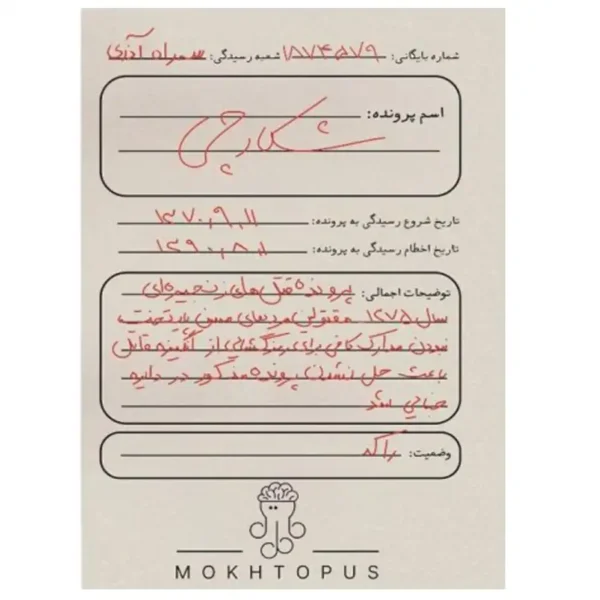 شماره بایگانی: ۱۸۷۴۵۷۹ شعبه رسیدگی: سمراد آذری
اسم پرونده:
شکارچی
تاریخ شروع رسیدگی به پرونده: ۱۳۷۰,۹,۱۱
تاریخ اخطام رسیدگی به پرونده: ۱۳۹۰,۸,۱
توضیحات اجمالی: پرونده قتل های زنجیره‌ای
سال ۱۳۷۵ مقتولین مردهای مسن پایتخت
نبودن مدارک کافی برای رمزگشایی از انگیزه قاتل
باعث حل نشدن پرونده مذکور در دایره
جنایی شد
وضعیت: راکد
MOKHTOPUS